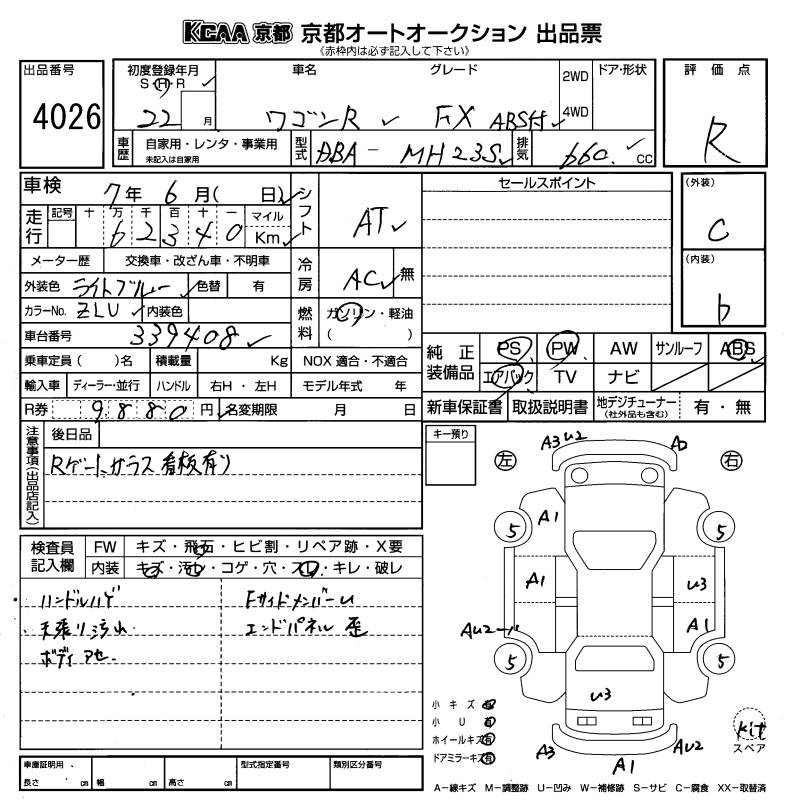 KCAA 京都 京都オートオークション 出品票
《赤枠内は必ず記入して下さい》
出品番号
4026
初度登録年月
S・H・R
22 月
車名
ワゴンR
グレード
FX ABS付
2WD
4WD
ドア・形状
評価点
R
車歴
自家用・レンタ・事業用
未記入は自家用
型式
DBA - MH23S
排気
660 cc
車検
7年 6月( 日)
シフト
AT
走行
記号 十 万 千 百 十 一 マイル
6 2 3 4 0 Km
メーター歴 交換車・改ざん車・不明車
冷房
AC 無
外装色 ライトブルー 色替 有
カラーNo. ZLU 内装色
燃料
ガソリン・軽油
( )
車台番号 339408
乗車定員( )名 積載量 Kg NOX 適合・不適合
輸入車 ディーラー・並行 ハンドル 右H・左H モデル年式 年
R券 9880 円 名変期限 月 日
セールスポイント
(外装)
C
(内装)
b
純正装備品
PS PW AW サンルーフ ABS
エアバック TV ナビ
新車保証書 取扱説明書 地デジチューナー
(社外品も含む) 有・無
注意事項(出品店記入)
後日品
Rゲートガラス看板有り
キー預り
検査員記入欄
FW キズ・飛石・ヒビ割・リペア跡・X要
内装 キズ・汚レ・コゲ・穴・スレ・キレ・破レ
ハンドルハゲ
天張り汚れ
ボディアセ
FサイドメンバーU
エンドパネル歪
左
右
A3 U2
A1
5
5
A1
U3
A1
AU2
5
5
U3
A3
A1
AU2
小キズ 有
小U 有
ホイールキズ 有
ドアミラーキズ 有
kit
スペア
車庫証明用
長さ cm 幅 cm 高さ cm
型式指定番号
類別区分番号
A―線キズ M―調整跡 U―凹み W―補修跡 S―サビ C―腐食 XX―取替済